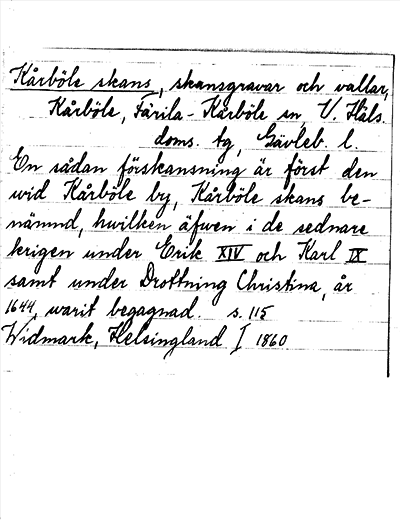 Kårböle skans, skansgravar och vallar,
Kårböle, Färila-Kårböle sn, V. Häls.
doms. tg, Gävleb. l.
En sådan förskansning är först den
wid Kårböle by, Kårböle skans be-
nämnd, hwilken äfwen i de sednare
krigen under Erik XIV och Karl IX
samt under Drottning Christina, år
1644, warit begagnad. s. 115
Widmark, Helsingland I 1860